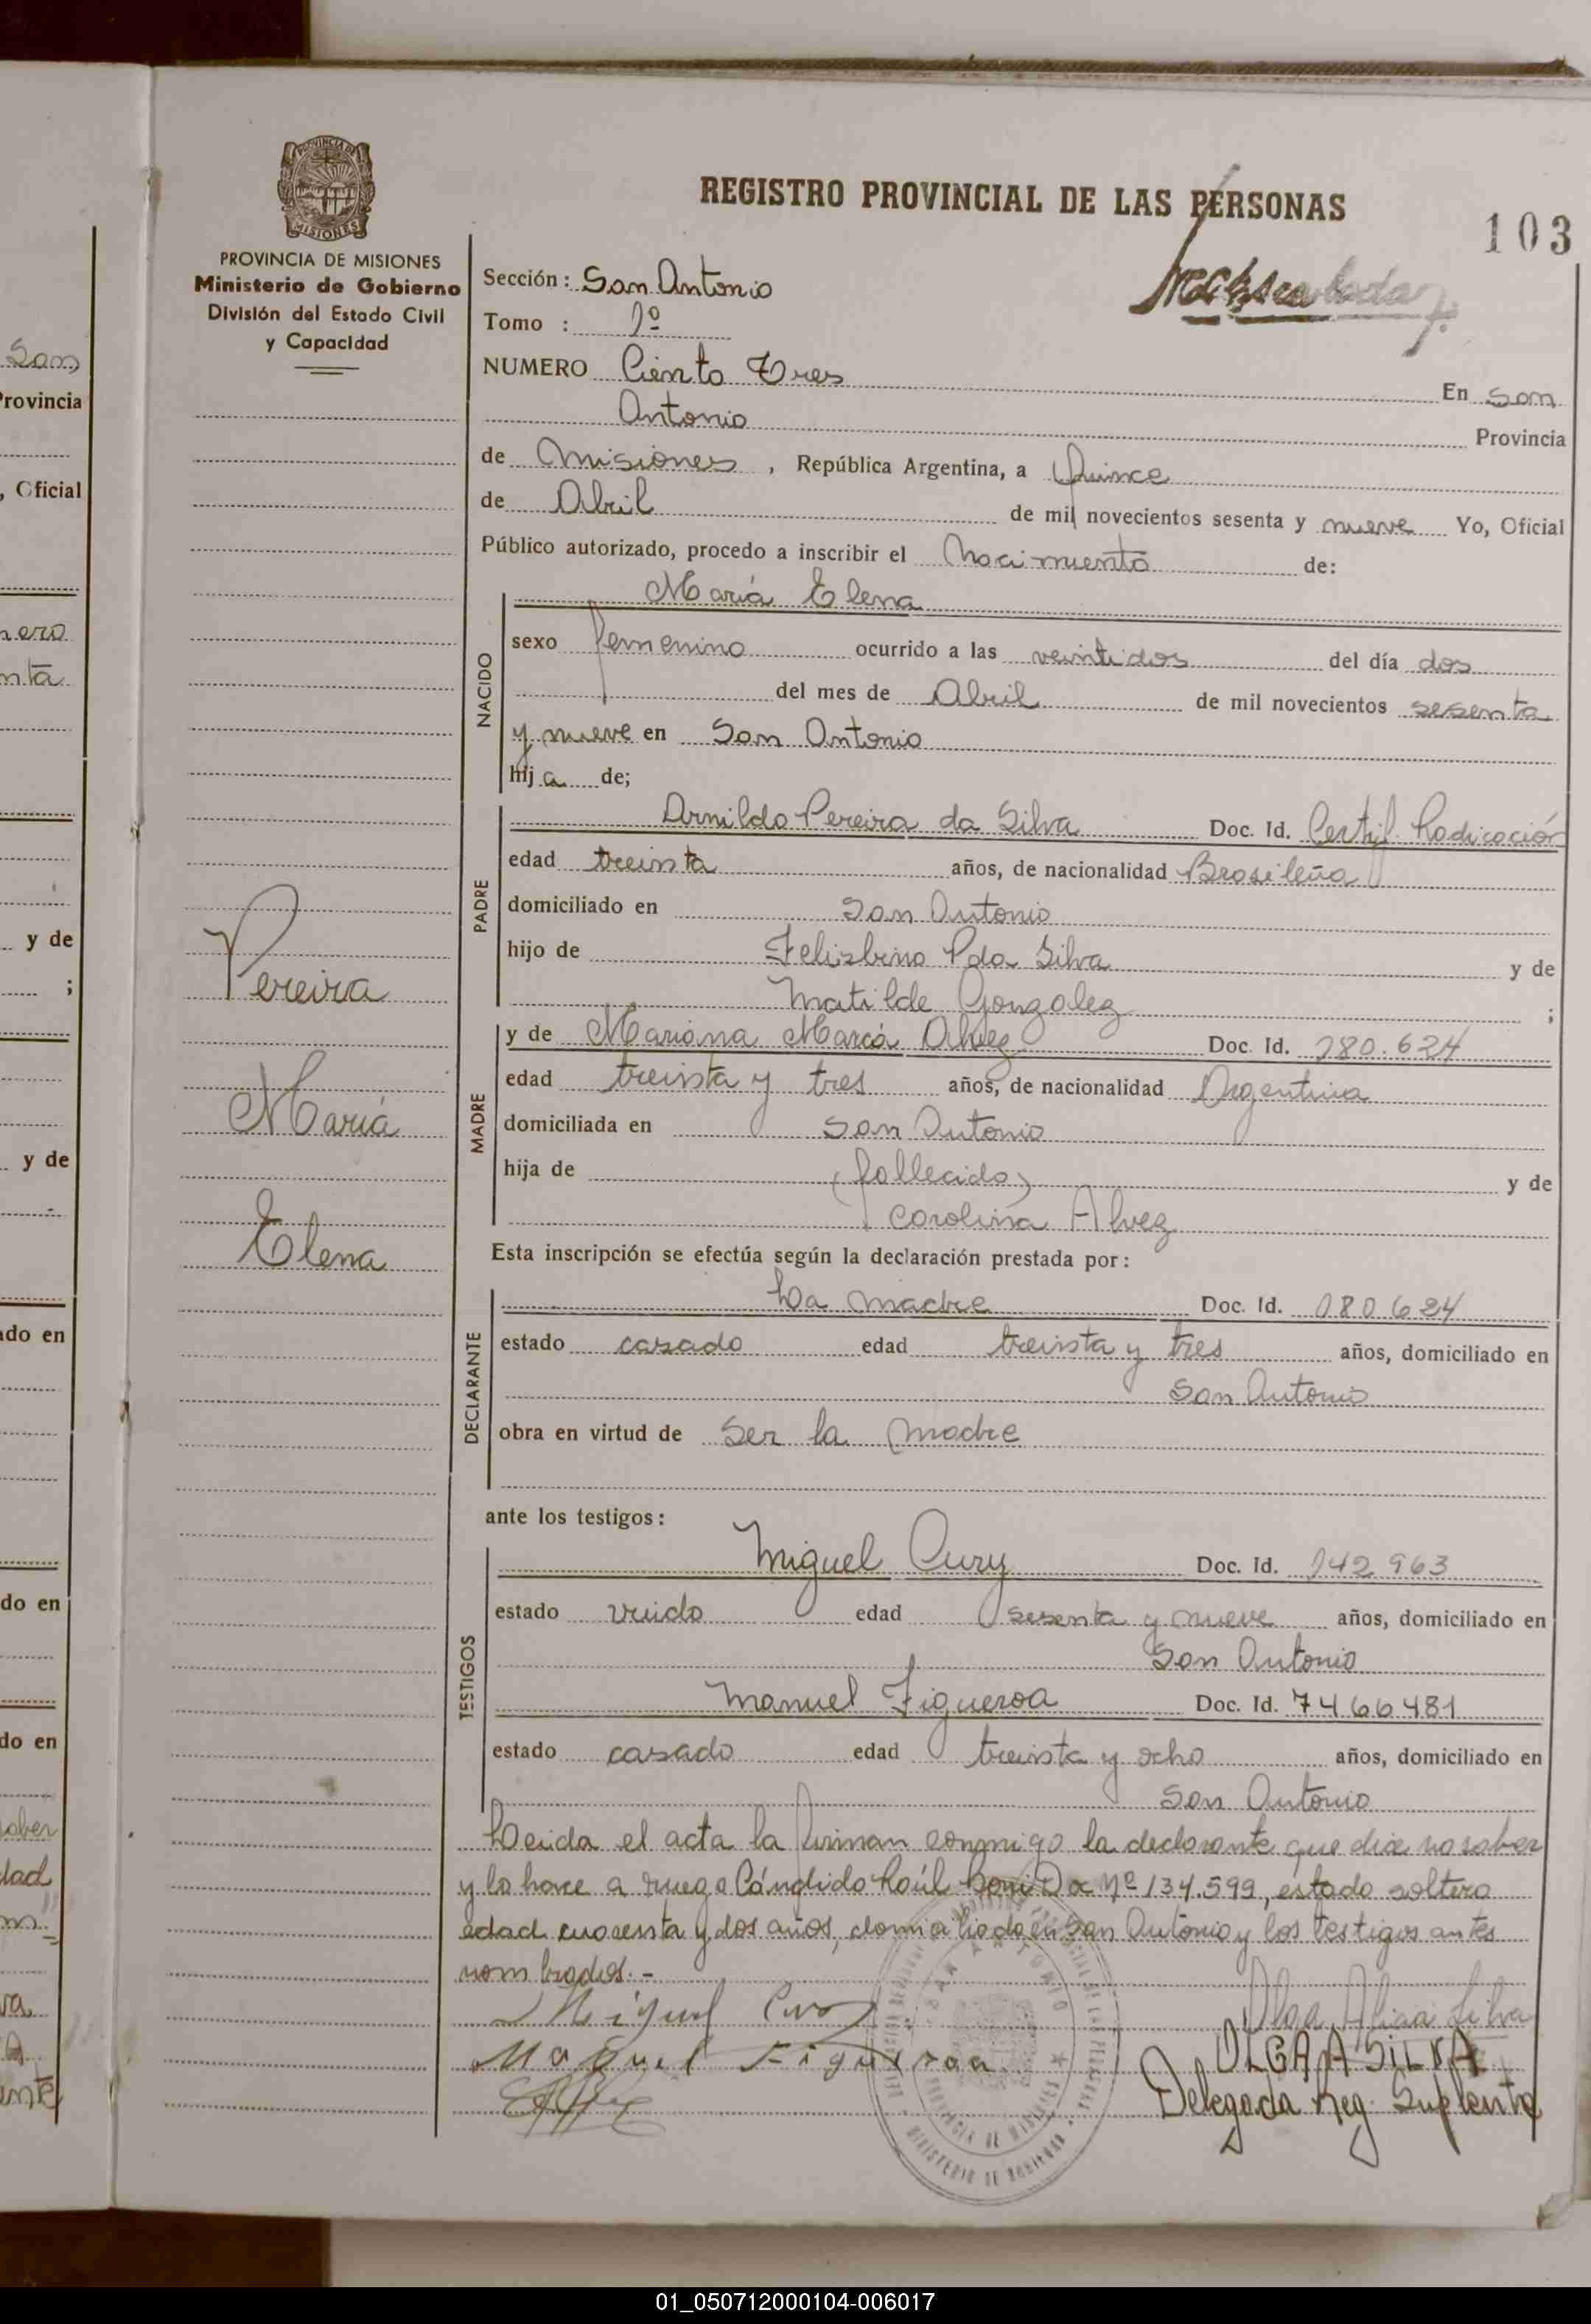 REGISTRO PROVINCIAL DE LAS PERSONAS
103
PROVINCIA DE MISIONES
Ministerio de Gobierno
División del Estado Civil
y Capacidad
Sección: San Antonio
Tomo : 1º
NUMERO Ciento Tres En San
Antonio Provincia
de Misiones , República Argentina, a Quince
de Abril de mil novecientos sesenta y nueve Yo, Oficial
Público autorizado, procedo a inscribir el Nacimiento de:
NACIDO
María Elena
sexo femenino ocurrido a las veintidos del día dos
del mes de Abril de mil novecientos sesenta
y nueve en San Antonio
hija de;
PADRE
Arnildo Pereira da Silva Doc. Id. Certif. Radicación
edad treinta años, de nacionalidad Brasileña
domiciliado en San Antonio
hijo de Felisbino P da Silva y de
Matilde Gonzalez ;
MADRE
y de Mariana Marcá Alvez Doc. Id. 180.624
edad treinta y tres años, de nacionalidad Argentina
domiciliada en San Antonio
hija de (fallecido) y de
Carolina Alvez
Pereira
María
Elena
Esta inscripción se efectúa según la declaración prestada por:
DECLARANTE
La madre Doc. Id. 180624
estado casado edad treinta y tres años, domiciliado en
San Antonio
obra en virtud de Ser la madre
ante los testigos:
TESTIGOS
Miguel Cury Doc. Id. 142963
estado viudo edad sesenta y nueve años, domiciliado en
San Antonio
Manuel Figueroa Doc. Id. 7466481
estado casado edad treinta y ocho años, domiciliado en
San Antonio
Leida el acta la firman conmigo la declarante que dice no saber
y lo hace a ruego Cándido Raúl Nº 134.599, estado soltero
edad cuarenta y dos años, domiciliado en San Antonio y los testigos antes
nombrados.-
Miguel Cury
Manuel Figueroa
Olga Alicia Silva
OLGA A SILVA
Delegada Reg. Suplente
01_050712000104-006017